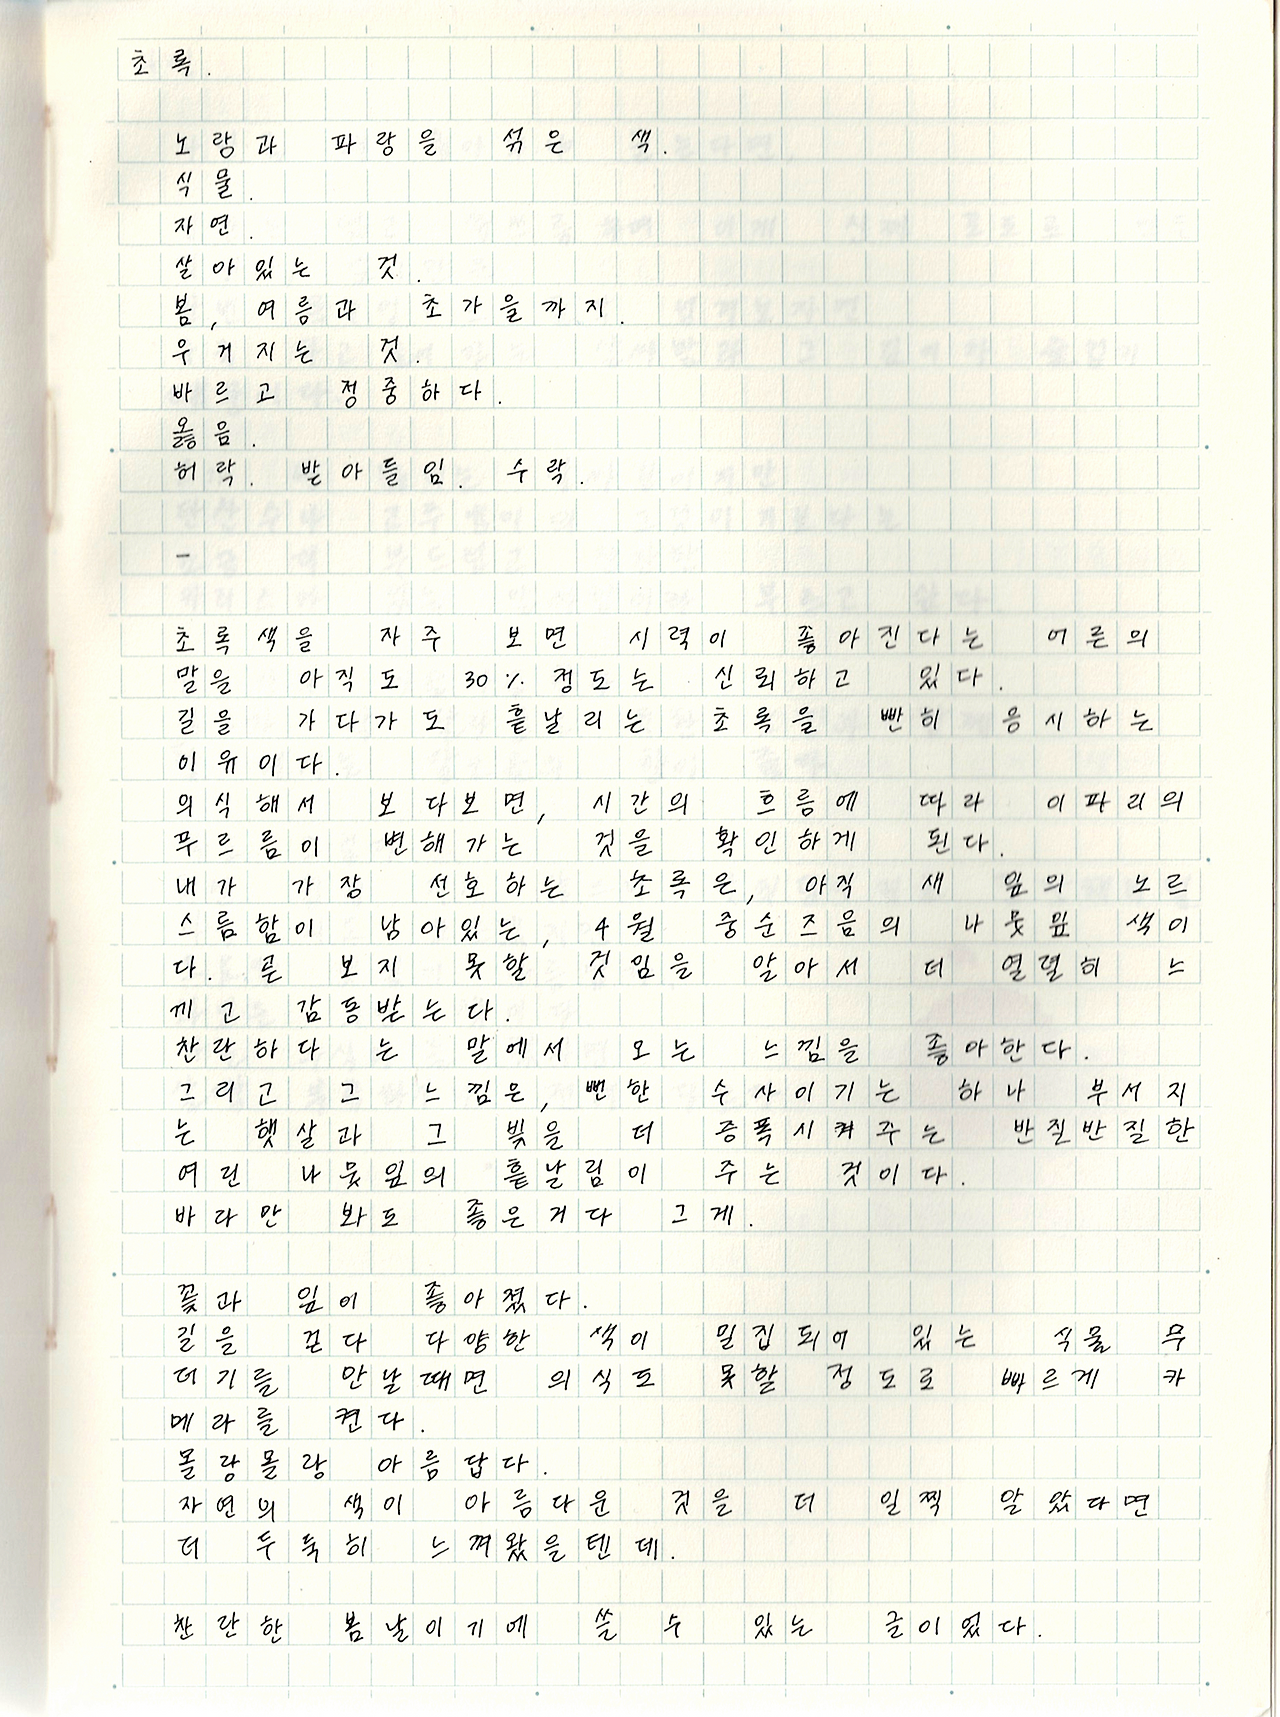 초록.
노랑과 파랑을 섞은 색.
식물.
자연.
살아있는 것.
봄, 여름과 초가을까지.
우거지는 것.
바르고 정중하다.
옳음.
허락. 받아들임. 수락.
-
초록색을 자주 보면 시력이 좋아진다는 어른의
말을 아직도 30% 정도는 신뢰하고 있다.
길을 가다가도 흩날리는 초록을 빤히 응시하는
이유이다.
의식해서 보다보면, 시간의 흐름에 따라 이파리의
푸르름이 변해가는 것을 확인하게 된다.
내가 가장 선호하는 초록은, 아직 새 잎의 노르
스름함이 남아있는, 4월 중순즈음의 나뭇잎 색이
다. 곧 보지 못할 것임을 알아서 더 열렬히 느
끼고 감동받는다.
찬란하다 는 말에서 오는 느낌을 좋아한다.
그리고 그 느낌은, 뻔한 수사이기는 하나 부서지
는 햇살과 그 빛을 더 증폭시켜주는 반질반질한
여린 나뭇잎의 흩날림이 주는 것이다.
바라만 봐도 좋은거다 그게.
꽃과 잎이 좋아졌다.
길을 걷다 다양한 색이 밀집되어 있는 식물 무
더기를 만날때면 의식도 못할 정도로 빠르게 카
메라를 켠다.
몰랑몰랑 아름답다.
자연의 색이 아름다운 것을 더 일찍 알았다면
더 두둑히 느껴왔을텐데.
찬란한 봄날이기에 쓸 수 있는 글이었다.